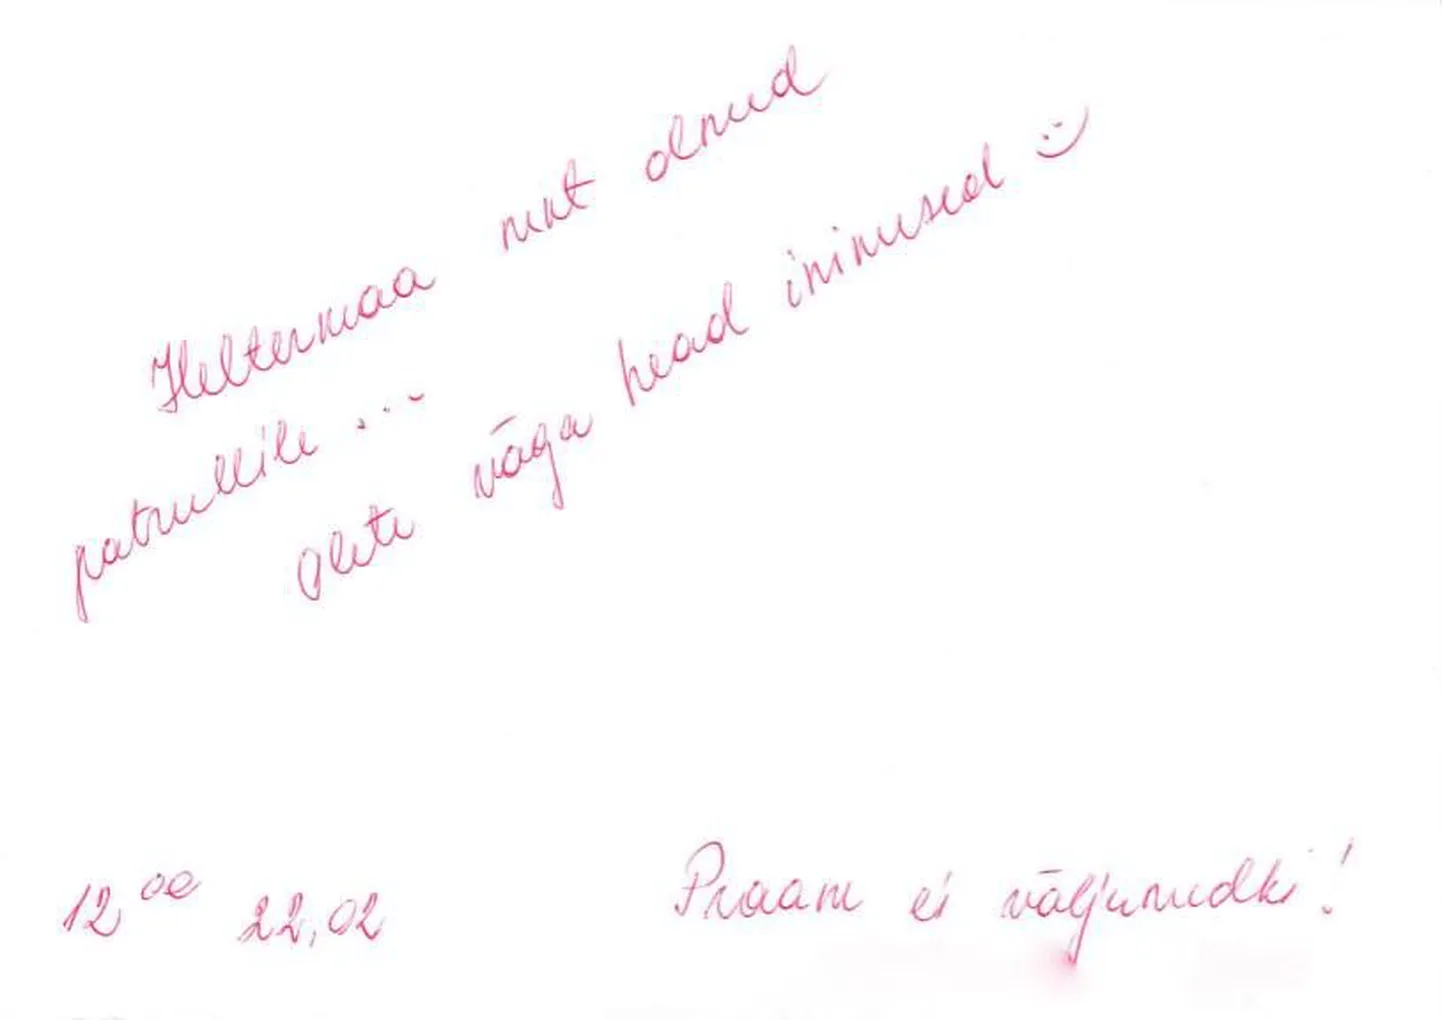 Heltermaa nut olnud
patrullile ...
Olete väga head inimesed :)
12 00 22.02 Praam ei väljunudki!